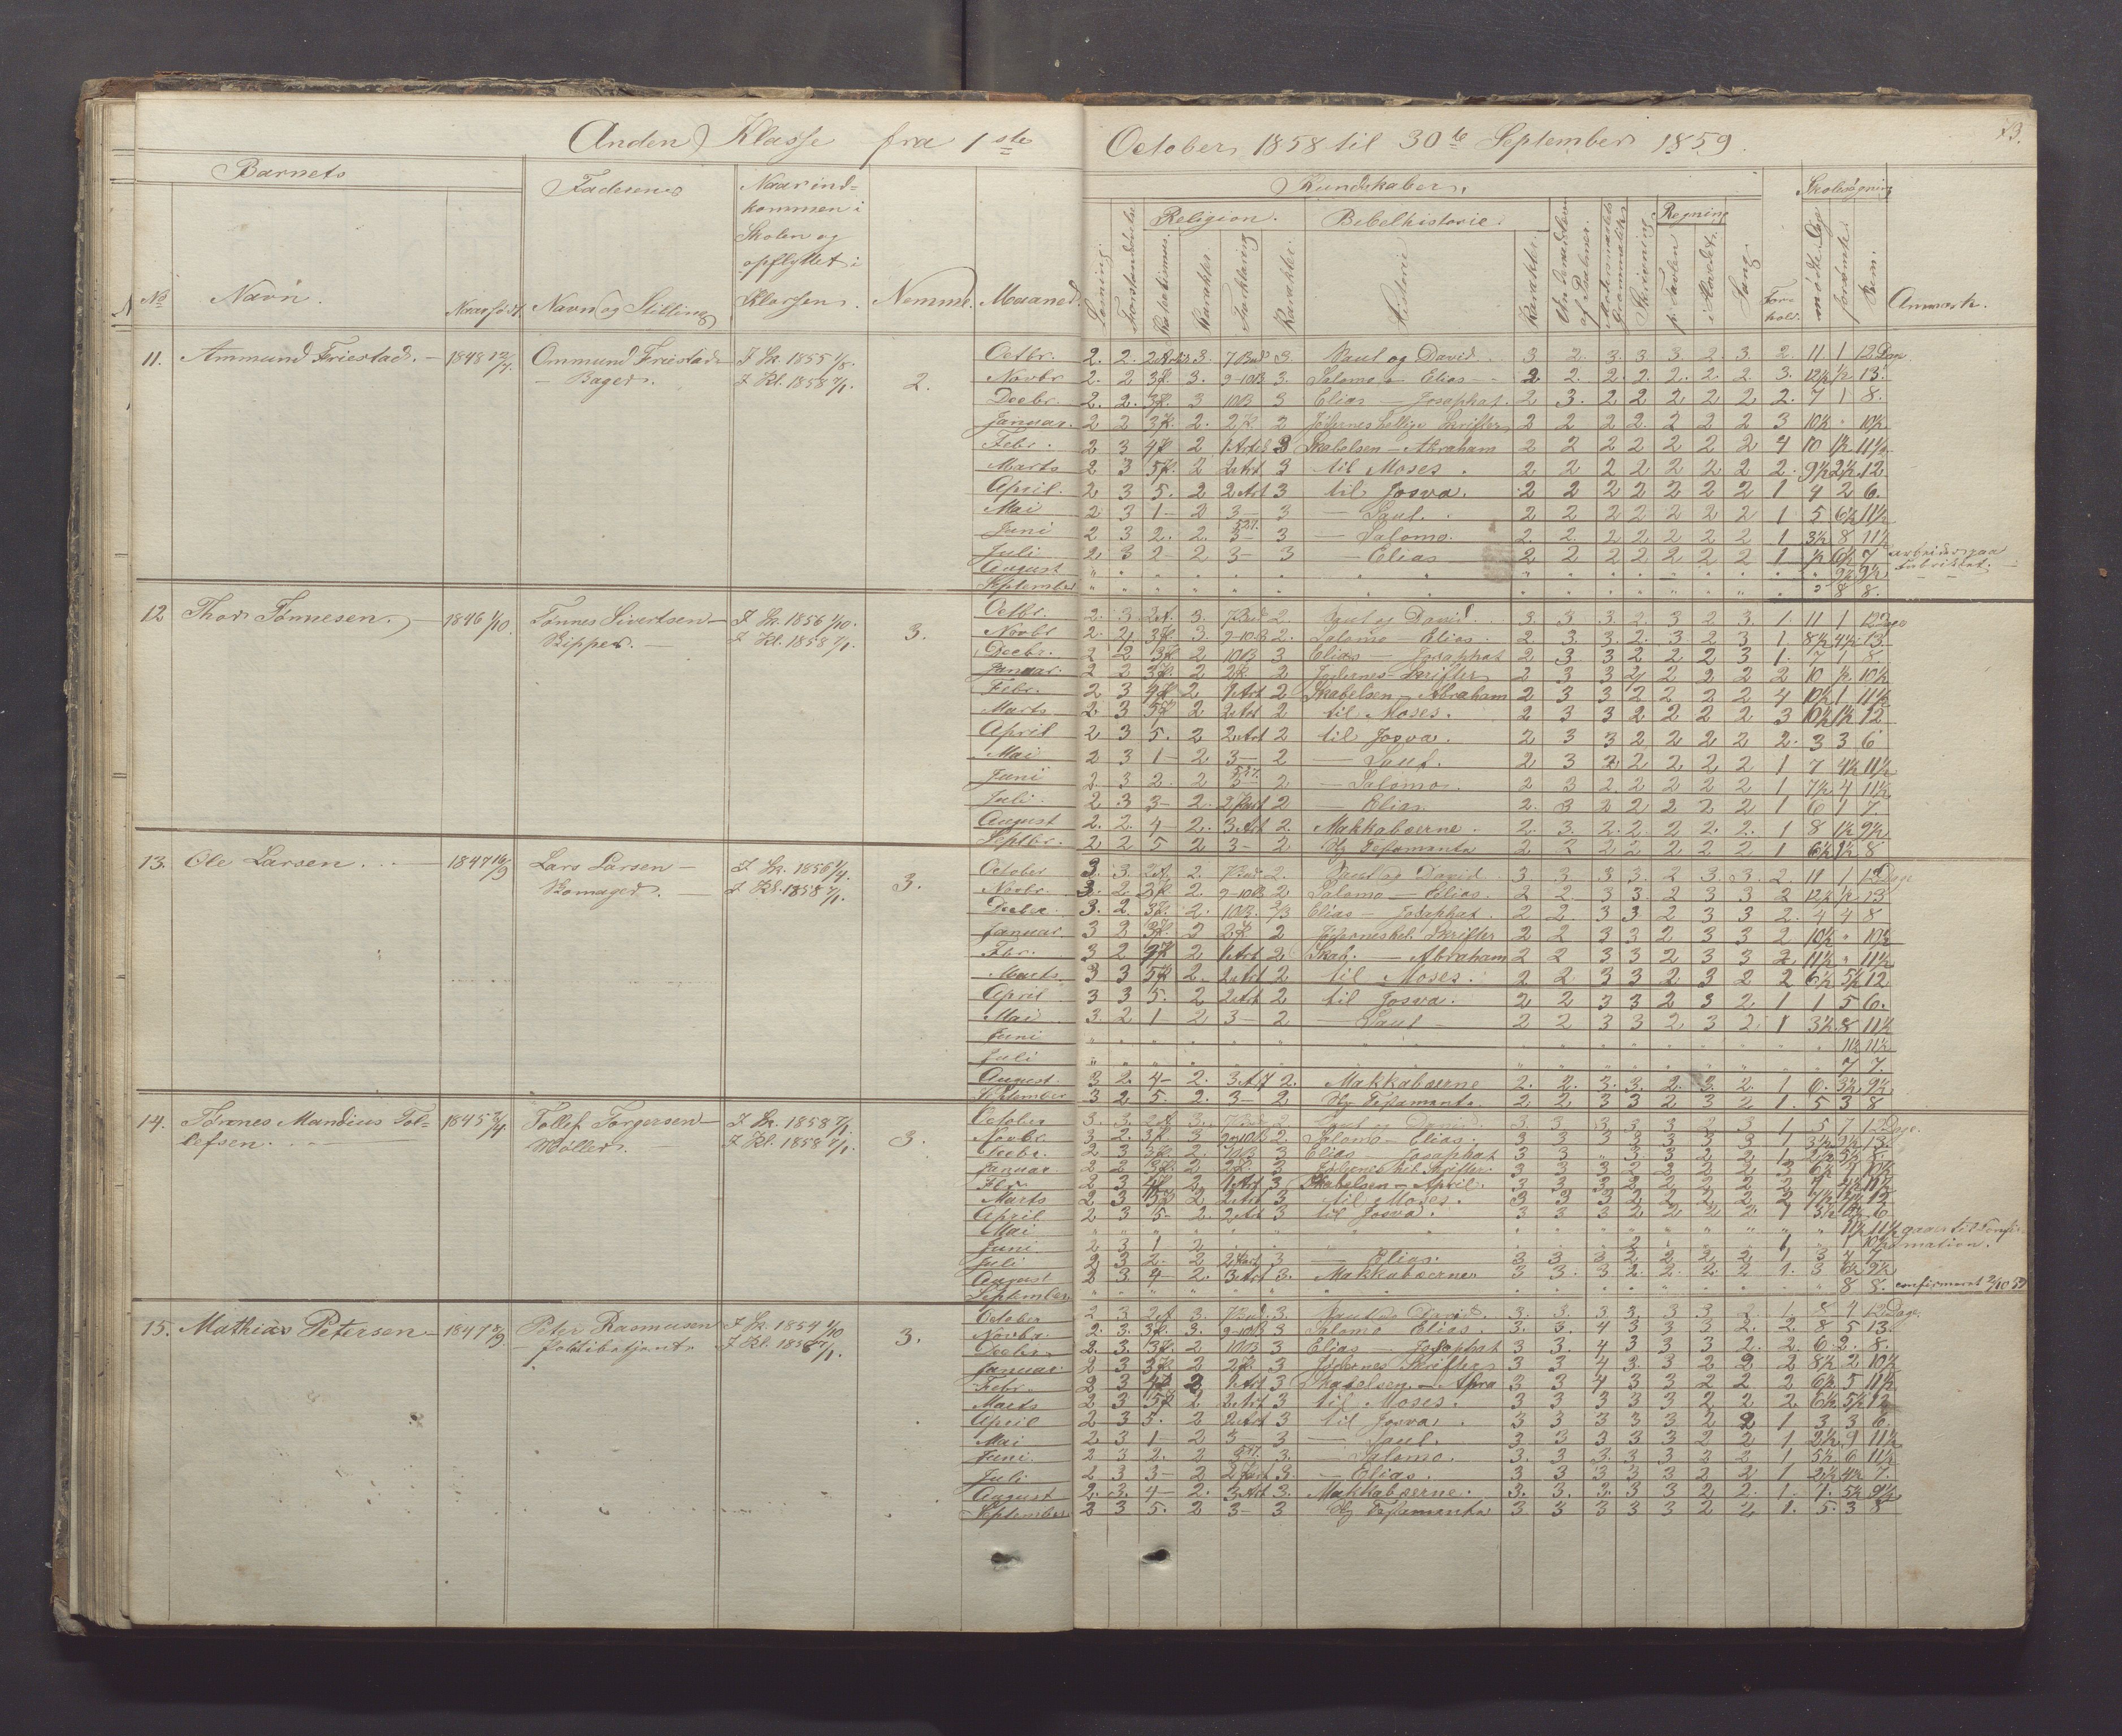 Anden Klasse fra 1ste October 1858 til 30te September 1859.
73.
Barnets
Faderens
Naar ind=
kommen i
Skolen og
opflyttet i
Klassen.
Nemme.
Maaned.
No
Navn.
Naar født
Navn og Stilling
Kundskaber.
Skolesøgning
Religion.
Bibelhistorie.
Regning
Læsning
Karakter.
Forklaring
Karakter.
Historie
Karakter.
Skrivning
p. Tavlen
i Hovedet.
Sang.
For-
hold.
mødte Dage
forsømte
Sum.
Anmærk.
11. Ammund Friestad. 1848 12/7. Ommund Friestad J Sk. 1855 1/8.
Bager. J Kl. 1858 7/1. 2.
Octbr. 2. 2. 3. 7 Bud 3. Saul og David. 3 2. 3. 3. 3. 2. 3. 2. 11. 1 12 Dage
Novbr 2. 2 3. 9-10B 3. Salomo - Elias 2 2. 2. 2. 2. 2. 2 3. 12½ ½ 13.
Decbr. 2. 2. 3 10B 3 Elias - Josaphat. 2 3. 2 2 2 2 2 2. 7 1 8.
Januar. 2 2 2. 2 Jødernes hellige Skrifter 2 2 2 2. 2 2 2 3 10½ " 10½
Febr. 2 3 2 1 Art 3 Skabelsen - Abraham 2 2 2 2 2 2 2 4 10 1½ 11½
Marts 2 3 2 2 Art 3 til Moses. 2 2 2 2 2 2 2 2. 9½ 2½ 12
April. 2 3 5. 2 2 Art 3 til Josva. 2 2 2 2 2 2 2 1 4 2 6.
Mai 2 3 1- 2 3- 3 - Saul. 2 2 2 2 2 2 2 1 5 6½ 11½
Juni 2 3 2. 2. 3- 3 - Salomo. 2. 2. 2 2 2 2 2 1 3½ 8 11½
Juli 2 3 2- 2 3- 3 - Elias 2 2 2 2 2 2 2 1 ½ 6½ 7. arbeider paa
August " 9½ 9½ Fabriket.
September " 8 8.
12 Thor Tønnesen. 1846 1/10. Tønnes Sivertsen J Sk. 1856 1/10.
Bipper. J Kl. 1858 7/1. 3.
Octbr. 2. 3 3. 7 Bud 2. Saul og David. 3 3 3 2 3 2 3 1. 11 1 12 Dage
Novbr 2. 2 3. 9-10B 2. Salomo - Elias. 2 3 3. 2. 3 2 3 1 8½ 4½ 13
Decbr. 2 2 2 10B 3 Elias - Josaphat 2 3 3 2 2 2 3 1. 7 1 8
Januar. 2 2 2 2 Jødernes Skrifter 2 3 3 2 2 2 2 2 10 ½ 10½
Febr. 2 3 2 1 Art 2 Skabelsen - Abraham 2 3 3 2 2 2 2 4 10½ 1 11½
Marts 2. 3 2 2 Art 2 til Moses. 2 3 3 2 2 2 2 3 10½ 1½ 12
April 2 3 5. 2 2 Art 2 til Josva. 2 3 3 2 2 2 2 2. 3 3 6
Mai 2 3 1- 2 3- 2 - Saul. 2 3 2 2 2 2 2 1 7 4½ 11½
Juni 2. 3 2. 2 3- 2 - Salomo. 2 3 2. 2 2 2 2 1 7½ 4 11½
Juli. 2 3 3- 2. 2 2 - Elias. 2. 3 2 2 2 2 2 1 6 1 7.
August 2. 2. 4- 2. 3 Art 2. Makkabæerne. 2. 3. 2. 2. 2 2. 2. 1 8 1½ 9½
Septbr. 2 2 5 2 3- 2 Ny Testamente 2 2 2 2 2 2 2 1 6½ 1½ 8
13. Ole Larsen. 1847 16/9 Lars Larsen J Sk. 1856 1/4.
Skomager. J Kl. 1858 7/1. 3.
October 3. 3. 2. 7 Bud 2. Saul og David 3 3 3 3. 2 3 3. 2. 11 1 12 Dage
Novbr. 3. 2. 2. 9-10B 2 Salomo - Elias. 2 2. 3 3. 2 3 3 2 12½ ½ 13
Decbr. 3. 2. 2. 10B. 2/3 Elias - Josaphat. 2 2. 3 3. 2 3 3 2. 4 4 8
Januar. 3 2 2 2 Jødernes hel. Skrifter 2 2 3 3 2 3 3 2. 10½ " 10½
Fbr. 3 2 2 1 Art 2 Skab. - Abraham 2 2 3 3 2 3 3 2 11½ " 11½
Marts 3 3 2. 2 Art 2 til Moses. 2 2 3 3 2 3 2 2 6½ 5½ 12
April 3 3 5. 2 2 Art 2 til Josva. 2 2 3 3 2 3 2 1 1 5 6.
Mai 3 2 1- 2 3- 2 - Saul - 2 2 3 3 2 3 2 1 3½ 8 11½
Juni " 11½ 11½
Juli " 7 7.
August 3 2. 4- 2. 3 Art 2. Makkabæerne 2. 2. 3. 3. 2. 3 2. 1 6. 3½ 9½
September 3 2 5. 2. 3- 2 Ny Testamente 2 2 3 3 2 3 2 1. 5 3 8
14. Tønnes Mandius Tol= 1845 2/4. Tollef Torgersen J Sk. 1858 7/1.
lefsen. Møller. J Kl. 1858 7/1. 3.
October 3. 3. 3. 7 Bud 2. Saul og David. 3. 3 3 3 3 2 3 1 5 7 12 Dage.
Novbr. 3 2. 9-10B 2. Salomo - Elias. 3 3 3 3 3 3 3 1 13.
Decbr. 2 3 2. 10B 3 Elias - Josaphat 3 3 " 3 3 2 2 1 8.
Januar 2 2 2 3 Jødernes hel. Skrifter. 3 3 3 2 2 2 2 3 10½
Fbr. 2 3 2 1 Art 3 Skabelsen - April. 3 3 3 2 2 2 2 2
Marts 2 3 2 2 Art 3 til Moses. 3 3 3 2 2 2 2 2 12
April 2 3 5- 2. 2 Art 3 til Josva. 3 3 3 2 2 2 " 1 6
Mai " 11½ 11½ gaar til Confir-
Juni 2 3 1 2 2 1 mation.
Juli 2 3 2. 2 3 - Elias. 3 3 3 2 2 2 2 1 3 4 7
August 2 3 4- 2. 3 Art 3. Makkabæerne. 3 3. 3 2. 2. 2. 2 1. 3 6½ 9½
September " 8 8. confirmeret 2/10 59
15. Mathias Petersen 1847 8/9. Peter Rasmusen J Sk. 1854 1/10
Politibetjent. J Kl. 1858 7/1. 3.
October 2 3 3. 7 Bud. 3. Saul og David. 3. 3. 3 3. 3 3 2 1 8 4 12 Dage
Novbr. 2. 3. 3. 9-10B 3 Salomo Elias 3. 3. 4 3 3 3 2. 2. 8 5 13.
Decbr 2. 3. 2 10B 3 Elias - Josaphat 3 3. 4 3 3 3 2. 2. 6. 2. 8.
Januar. 2 3 2 3 Jødernes Skrifter 3 3 4 3. 3 2 2 2 8½ 2 10½
Febr. 2 3 2 1 Art 3 Skabelsen - Abra 3 3 4 3 3 2 2 2 6½ 5 11½
Marts 2 3 2 2 Art 3 til Moses. 3 3 3 3 3 2 2 2 6½ 5½ 12
April 2 3 5. 2 2 Art 3 til Josva. 3 3 3 3 3 2 2 1 3 3 6.
Mai 2 3 1- 2 3- 3 - Saul. 3 3 3 3 3 2 2 1 2½ 9 11½
Juni 2 3 2. 2 3. - Salomo. 3 3 3. 3 3 2 2 1 5½ 6 11½
Juli 2 3 3- 2 3. - Elias. 3 3 3 3 3 2 2 1 2½ 4½ 7.
August 2. 3. 4- 2. 3 Art 3. Makkabæerne. 3. 3. 3. 3 3 2 2. 1. 4. 5½ 9½
September 2 3 5. 2 3- 3 Ny Testamente 3 3 3 3 3 2 2 1. 5. 3 8